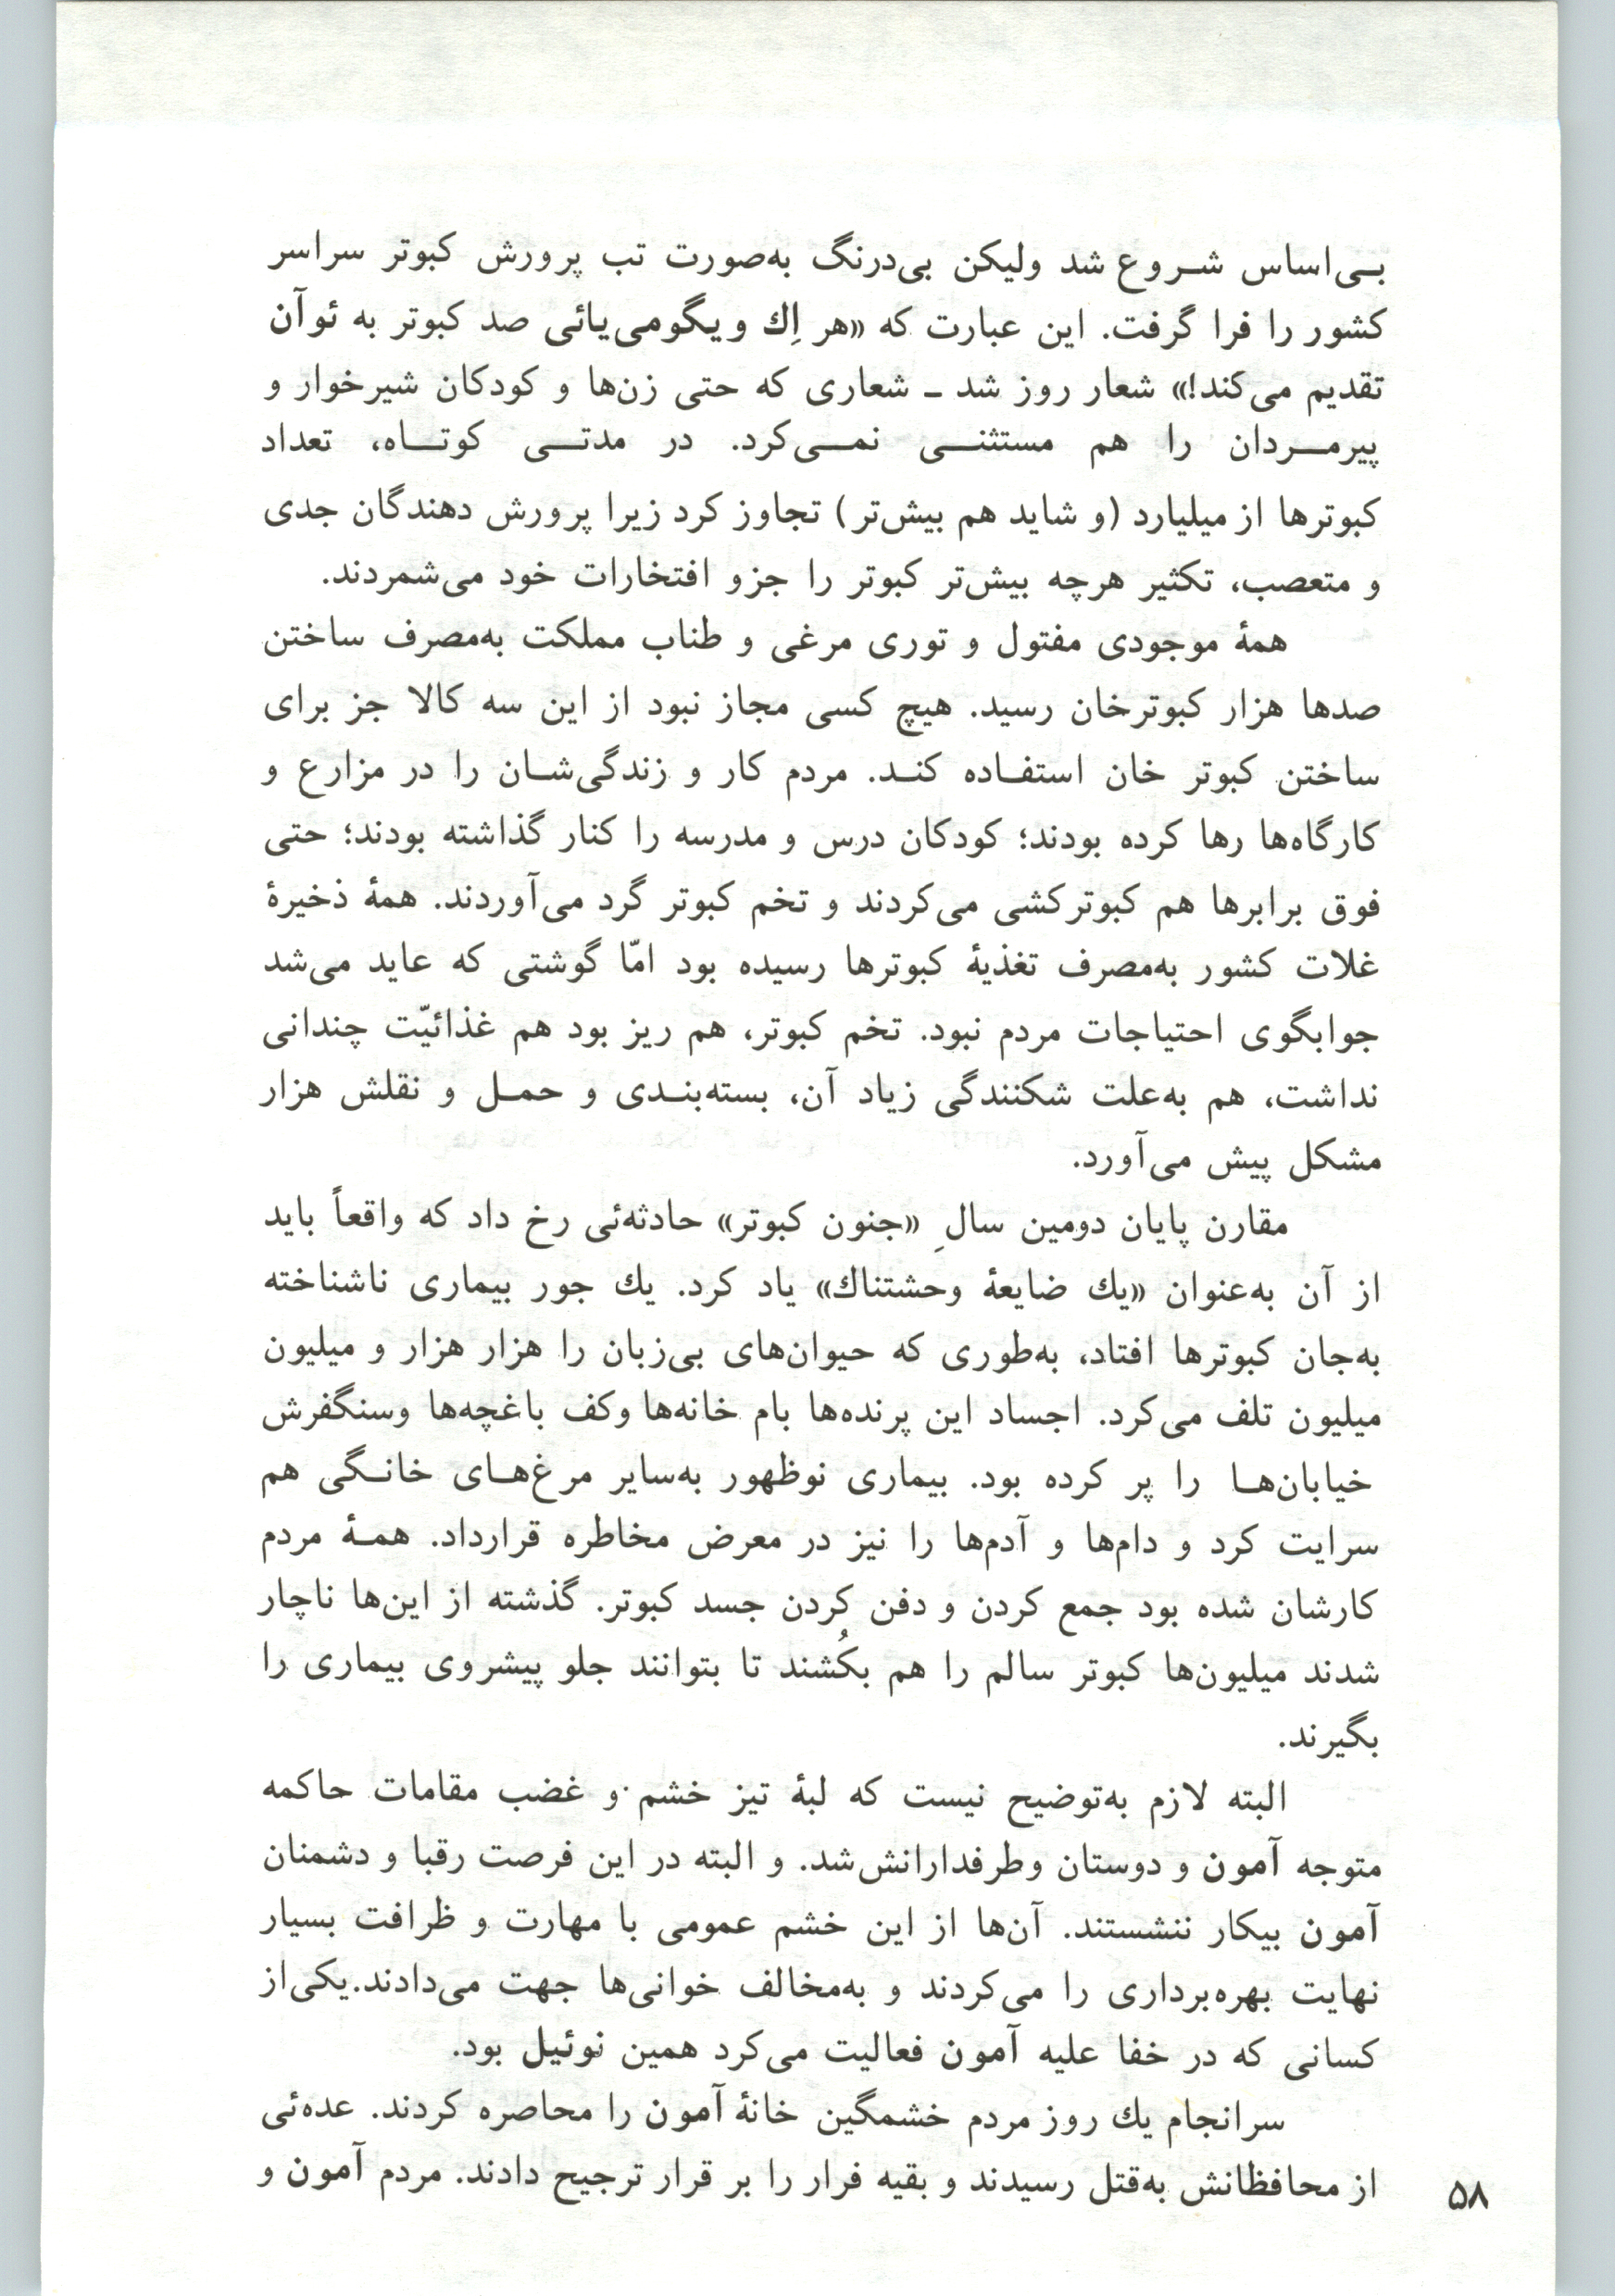 بی‌اساس شروع شد ولیکن بی‌درنگ به‌صورت تب پرورش کبوتر سراسر
کشور را فرا گرفت. این عبارت که «هر اِك ویگومی‌یائی صد کبوتر به ئوآن
تقدیم می‌کند!» شعار روز شد ـ شعاری که حتی زن‌ها و کودکان شیرخوار و
پیرمردان را هم مستثنی نمی‌کرد. در مدتی کوتاه، تعداد
کبوترها از میلیارد (و شاید هم بیش‌تر) تجاوز کرد زیرا پرورش دهندگان جدی
و متعصب، تکثیر هرچه بیش‌تر کبوتر را جزو افتخارات خود می‌شمردند.
همهٔ موجودی مفتول و توری مرغی و طناب مملکت به‌مصرف ساختن
صدها هزار کبوترخان رسید. هیچ کسی مجاز نبود از این سه کالا جز برای
ساختن کبوتر خان استفاده کند. مردم کار و زندگی‌شان را در مزارع و
کارگاه‌ها رها کرده بودند؛ کودکان درس و مدرسه را کنار گذاشته بودند؛ حتی
فوق برابرها هم کبوترکشی می‌کردند و تخم کبوتر گرد می‌آوردند. همهٔ ذخیرهٔ
غلات کشور به‌مصرف تغذیهٔ کبوترها رسیده بود امّا گوشتی که عاید می‌شد
جوابگوی احتیاجات مردم نبود. تخم کبوتر، هم ریز بود هم غذائیّت چندانی
نداشت، هم به‌علت شکنندگی زیاد آن، بسته‌بندی و حمل و نقلش هزار
مشکل پیش می‌آورد.
مقارن پایان دومین سالِ «جنون کبوتر» حادثه‌ئی رخ داد که واقعاً باید
از آن به‌عنوان «یك ضایعهٔ وحشتناك» یاد کرد. یك جور بیماری ناشناخته
به‌جان کبوترها افتاد، به‌طوری که حیوان‌های بی‌زبان را هزار هزار و میلیون
میلیون تلف می‌کرد. اجساد این پرنده‌ها بام خانه‌ها وکف باغچه‌ها وسنگفرش
خیابان‌ها را پر کرده بود. بیماری نوظهور به‌سایر مرغ‌های خانگی هم
سرایت کرد و دام‌ها و آدم‌ها را نیز در معرض مخاطره قرارداد. همهٔ مردم
کارشان شده بود جمع کردن و دفن کردن جسد کبوتر. گذشته از این‌ها ناچار
شدند میلیون‌ها کبوتر سالم را هم بکُشند تا بتوانند جلو پیشروی بیماری را
بگیرند.
البته لازم به‌توضیح نیست که لبهٔ تیز خشم و غضب مقامات حاکمه
متوجه آمون و دوستان وطرفدارانش‌شد. و البته در این فرصت رقبا و دشمنان
آمون بیکار ننشستند. آن‌ها از این خشم عمومی با مهارت و ظرافت بسیار
نهایت بهره‌برداری را می‌کردند و به‌مخالف خوانی‌ها جهت می‌دادند.یکی‌از
کسانی که در خفا علیه آمون فعالیت می‌کرد همین نوئیل بود.
سرانجام یك روز مردم خشمگین خانهٔ آمون را محاصره کردند. عده‌ئی
از محافظانش به‌قتل رسیدند و بقیه فرار را بر قرار ترجیح دادند. مردم آمون و
۵۸